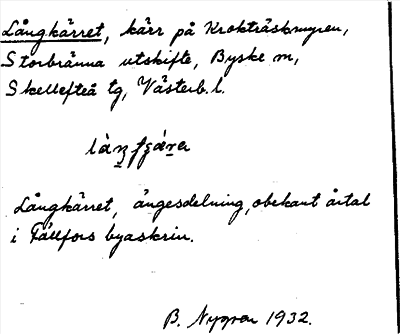 Långkärret, kärr på Krokträskmyren,
Storbränna utskifte, Byske sn,
Skellefteå tg, Västerb. l.
Långkärret, ängesdelning, obekant årtal
i Fällfors byaskrin.
B. Nygren 1932.